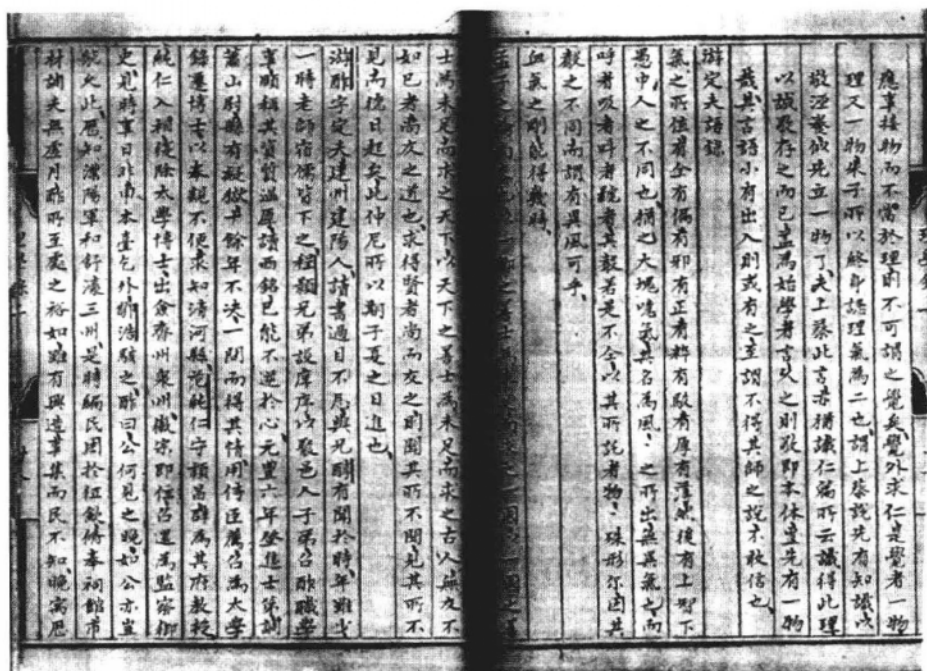 應事接物而不當於理則不可謂之覺矣覺外求仁是覺者一物
理又一物朱子所以終身認理氣為二也謂上蔡說先有知識以
敬涵養似先立一物了夫上蔡此言亦猶識仁篇所云識得此理
以誠敬存之而已蓋為始學者言久之則敬即本体豈先有一物
哉其言語小有出入則或有之至謂不得其師之說不敢信也
游定夫語錄
氣之所值有全有偏有邪有正有粹有駁有厚有薄然後有上智下
愚中人之不同也猶之大塊噫氣其名為風之所出無異氣也而
呼者吸者叫者號者其聲若是不仝以其所託者物物殊形尔因其
聲之不同而謂有異風可乎
血氣之剛能得幾時
孟子之論尚友也一鄉之善士為未足而求之一國一國之善
士為未足而求之天下以天下之善士為未足而求之古人無友不
如已者尚友之道也求得賢者尚而友之則聞其所不聞見其所不
見而德日起矣此仲尼所以期子夏之日進也
游酢字定夫建州建陽人讀書過目不忘與兄醇有聞於時年雖少
一時老師宿儒皆下之程顥兄弟設庠序以教邑人子弟召酢職學
事頤稱其資質溫厚讀西銘已能不逆於心元豐六年登進士第調
蕭山尉縣有疑獄十餘年不決一閱而得其情用侍臣薦召為太學
錄遷博士以奉親不便求知清河縣范純仁守潁昌辟為其府教授
純仁入相復除太學博士出僉齊州泉州徽宗即位召還為監察御
史見時事日非向本臺乞外鄒浩駭之酢曰公何見之晚如公亦豈
能久此歷知漢陽軍和舒濠三州是時編民困於征歛偹奉祠館市
材調夫無虛月酢所至處之裕如雖有興造事集而民不知晚寓歷